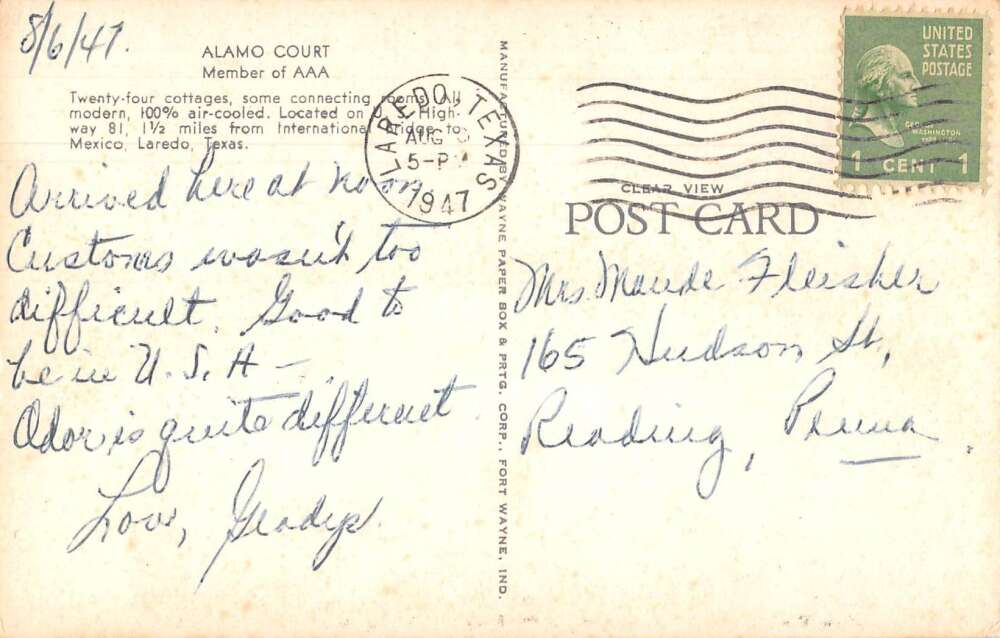 8/6/47.
ALAMO COURT
Member of AAA
Twenty-four cottages, some connecting rooms. All
modern, 100% air-cooled. Located on U. S. High-
way 81, 1½ miles from International Bridge to
Mexico, Laredo, Texas.
Arrived here at noon.
Customs wasn't too
difficult. Good to
be in U. S. A –
Odor is quite different.
Love, Gladys.
MANUFACTURED BY WAYNE PAPER BOX & PRTG. CORP., FORT WAYNE, IND.
LAREDO, TEXAS
AUG 6
5-PM
1947
UNITED
STATES
POSTAGE
GEORGE
WASHINGTON
1 CENT 1
CLEAR VIEW
POST CARD
Mrs. Maude Fleisher
165 Hudson St,
Reading, Penna.